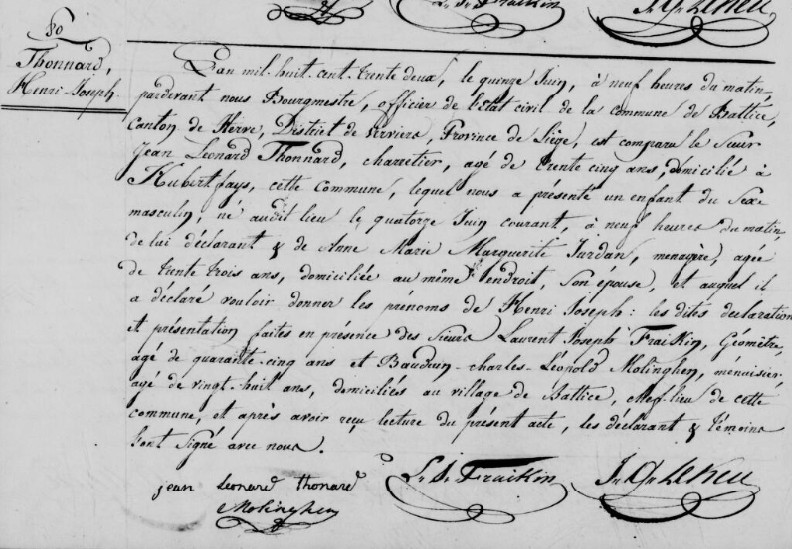 L. J. Fraikin J. G. Leheu
80
Thonnard,
Henri-Joseph.
L'an mil-huit-cent-trente deux, le quinze Juin, à neuf heures du matin,
pardevant nous Bourgmestre, officier de l'Etat civil de la commune de Battice,
Canton de Herve, District de Verviers, Province de Liège, est comparu le Sieur
Jean Léonard Thonnard, charretier, agé de trente cinq ans, domicilié à
Hubertfays, cette commune, lequel nous a présenté un enfant du Sexe
masculin, né audit lieu le quatorze Juin courant, à neuf heures du matin,
de lui déclarant & de Anne Marie Marguerite Jurdan, menagère, agée
de trente trois ans, domiciliée au même endroit, Son épouse, et auquel il
a déclaré vouloir donner les prénoms de Henri Joseph: les dites déclaration
et présentation faites en présence des Sieurs Laurent Joseph Fraikin, Géomètre,
agé de quarante-cinq ans et Bauduin-charles-Léopold Molinghen, ménuisier,
agé de vingt-huit ans, domiciliés au village de Battice, chef-lieu de cette
commune, et après avoir reçu lecture du présent acte, les déclarant & témoins
l'ont Signé avec nous.
jean Leonard thonard L. J. Fraikin J. G. Leheu
Molinghen